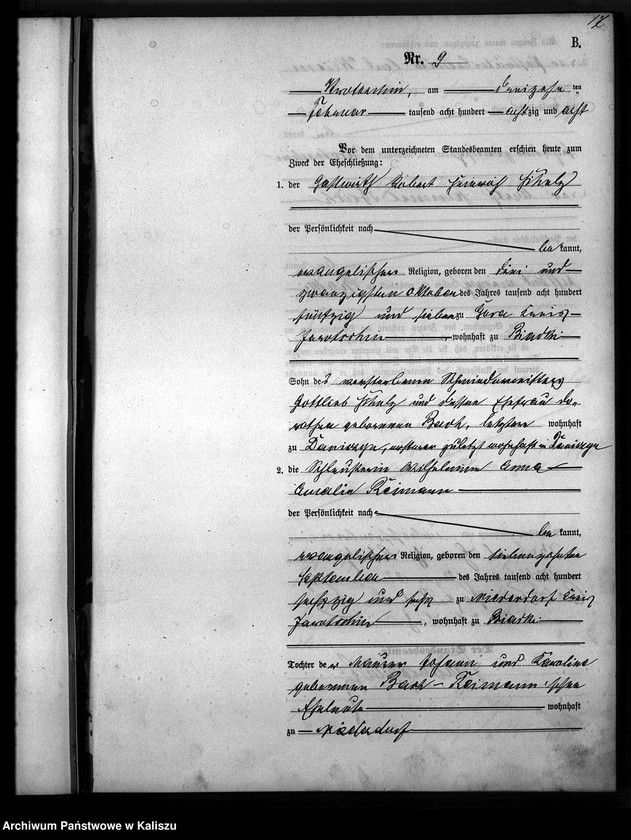 17
B.
Nr. 9
Krotoschin, am dreizehn ten
Februar tausend acht hundert achtzig und acht
Vor dem unterzeichneten Standesbeamten erschien heute zum
Zweck der Eheschließung:
1. der Gastwirth Robert Heinrich Scholz
der Persönlichkeit nach
be kannt,
evangelischer Religion, geboren den drei und
zwanzigsten Oktober des Jahres tausend acht hundert
fünfzig und sieben zu Gora Kreis
Jarotschin, wohnhaft zu Biadki
Sohn des verstorbenen Schmiedemeisters
Gottlieb Scholz und dessen Ehefrau Do-
rothea geborenen Bach, letztere wohnhaft
zu ersterer zuletzt wohnhaft in
2. die Wilhelmine Anna
Amalie Reimann
der Persönlichkeit nach
be kannt,
evangelischer Religion, geboren den siebenzehnten
September des Jahres tausend acht hundert
sechszig und sechs zu Niederdorf Kreis
Jarotschin, wohnhaft zu Biadki
Tochter der Maurer Johann und Karoline
geborenen Bach - Reimann'schen
Eheleute wohnhaft
zu Niederdorf
Archiwum Państwowe w Kaliszu